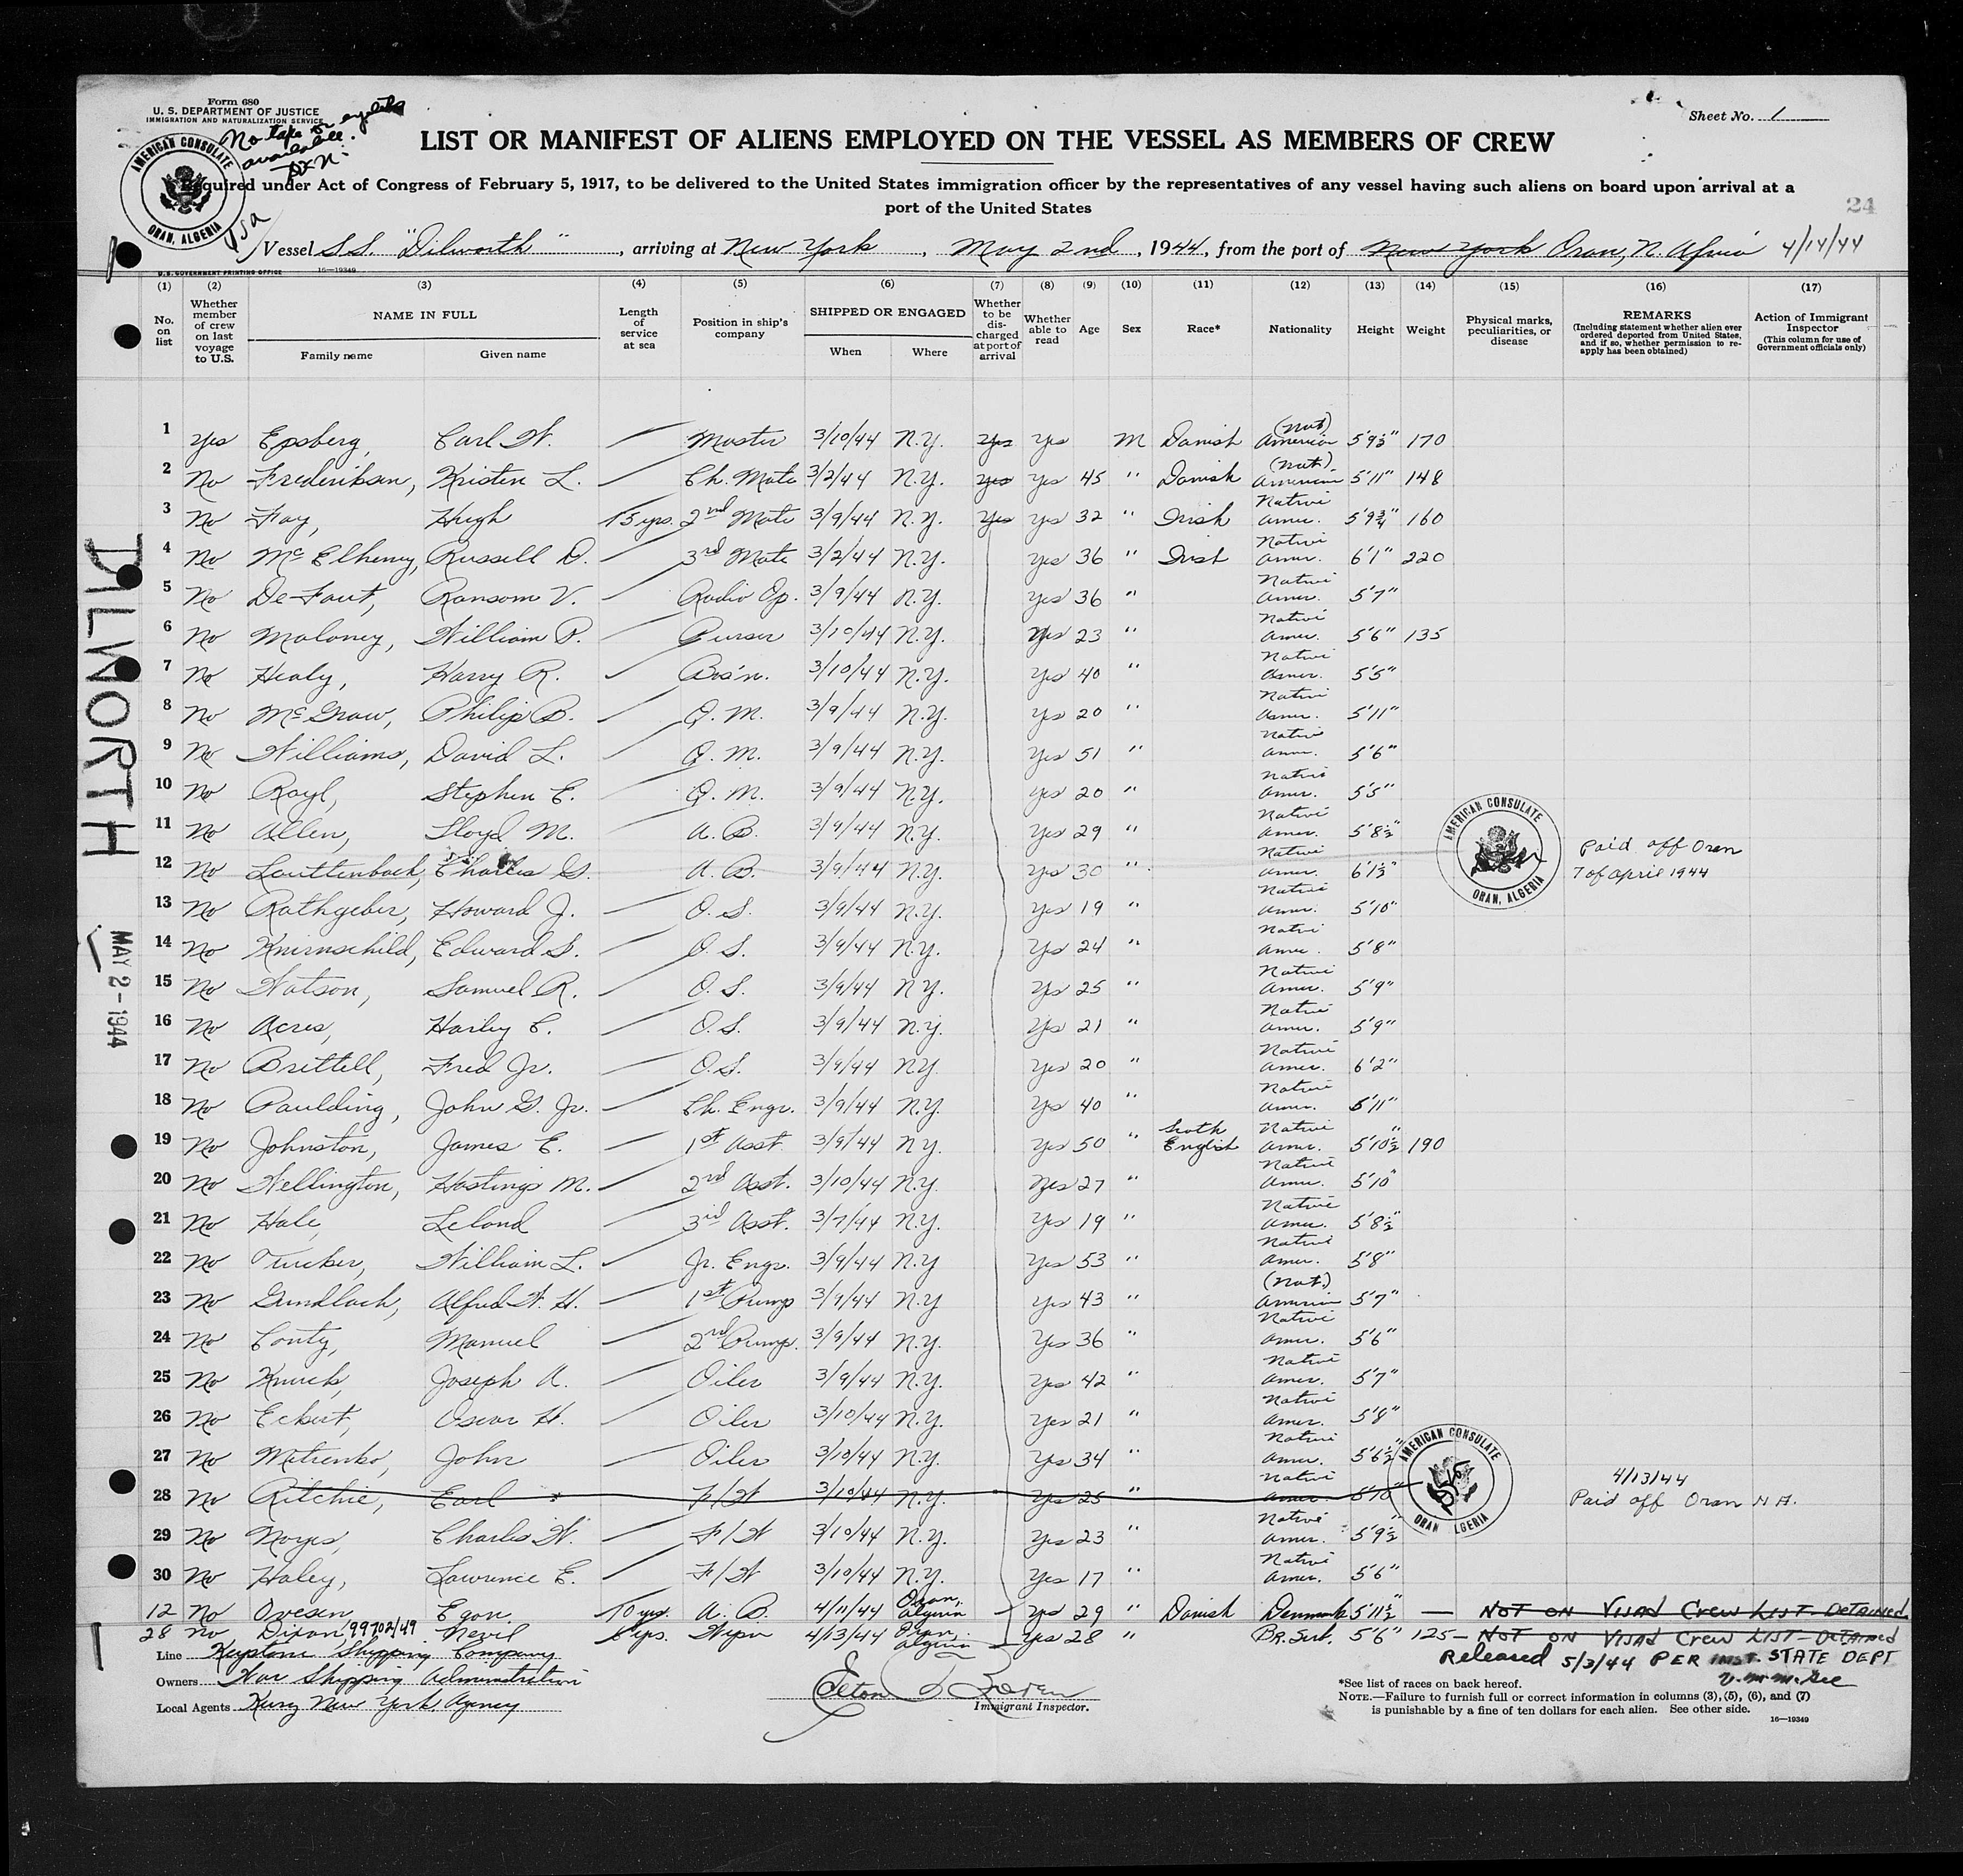 Form 680
U. S. DEPARTMENT OF JUSTICE
IMMIGRATION AND NATURALIZATION SERVICE
No tape or eyelets
available.
AMERICAN CONSULATE
ORAN, ALGERIA
Sheet No. 1
LIST OR MANIFEST OF ALIENS EMPLOYED ON THE VESSEL AS MEMBERS OF CREW
Required under Act of Congress of February 5, 1917, to be delivered to the United States immigration officer by the representatives of any vessel having such aliens on board upon arrival at a
port of the United States
24
USA
Vessel S.S. "Dilworth", arriving at New York, May 2nd, 1944, from the port of New York Oran, N. Africa 4/14/44
U.S. GOVERNMENT PRINTING OFFICE 16—19349
(1) (2) (3) (4) (5) (6) (7) (8) (9) (10) (11) (12) (13) (14) (15) (16) (17)
No. on list
Whether member of crew on last voyage to U.S.
NAME IN FULL
Family name Given name
Length of service at sea
Position in ship's company
SHIPPED OR ENGAGED
When Where
Whether to be discharged at port of arrival
Whether able to read
Age
Sex
Race*
Nationality
Height
Weight
Physical marks, peculiarities, or disease
REMARKS
(Including statement whether alien ever ordered deported from United States, and if so, whether permission to reapply has been obtained)
Action of Immigrant Inspector
(This column for use of Government officials only)
1 Yes Epsberg, Carl W. Master 3/10/44 N.Y. Yes Yes M Danish (Nat) American 5'9½" 170
2 No Frederiksen, Kristen L. Ch. Mate 3/2/44 N.Y. Yes Yes 45 " Danish (Nat.) American 5'11" 148
3 No Fay, Hugh 15 yrs. 2nd Mate 3/9/44 N.Y. Yes Yes 32 " Irish Native Amer. 5'9¾" 160
4 No McElheney, Russell D. 3rd Mate 3/2/44 N.Y. Yes 36 " Irish Native Amer. 6'1" 220
5 No De Faut, Ransom V. Radio Op. 3/9/44 N.Y. Yes 36 " Native Amer. 5'7"
6 No Maloney, William P. Purser 3/10/44 N.Y. Yes 23 " Native Amer. 5'6" 135
7 No Healy, Harry R. Bos'n. 3/10/44 N.Y. Yes 40 " Native Amer. 5'5"
8 No McGraw, Philip B. Q. M. 3/9/44 N.Y. Yes 20 " Native Amer. 5'11"
9 No Williams, David L. Q. M. 3/9/44 N.Y. Yes 51 " Native Amer. 5'6"
10 No Rayl, Stephen E. Q. M. 3/9/44 N.Y. Yes 20 " Native Amer. 5'5"
11 No Allen, Lloyd M. A. B. 3/9/44 N.Y. Yes 29 " Native Amer. 5'8½"
12 No Lauttenbach, Charles G. A. B. 3/9/44 N.Y. Yes 30 " Native Amer. 6'1½"
AMERICAN CONSULATE
ORAN, ALGERIA
Paid off Oran
7 of april 1944
13 No Rathgeber, Howard J. O. S. 3/9/44 N.Y. Yes 19 " Native Amer. 5'10"
14 No Knirnschild, Edward S. O. S. 3/9/44 N.Y. Yes 24 " Native Amer. 5'8"
15 No Watson, Samuel R. O. S. 3/9/44 N.Y. Yes 25 " Native Amer. 5'9"
16 No Acres, Harley C. O. S. 3/9/44 N.Y. Yes 21 " Native Amer. 5'9"
17 No Brettell, Fred Jr. O. S. 3/9/44 N.Y. Yes 20 " Native Amer. 6'2"
18 No Paulding, John G. Jr. Ch. Engr. 3/9/44 N.Y. Yes 40 " Native Amer. 5'11"
19 No Johnston, James E. 1st Asst. 3/9/44 N.Y. Yes 50 " Scotch English Native Amer. 5'10½" 190
20 No Wellington, Hastings M. 2nd Asst. 3/10/44 N.Y. Yes 27 " Native Amer. 5'10"
21 No Hale, Leland 3rd Asst. 3/7/44 N.Y. Yes 19 " Native Amer. 5'8½"
22 No Tucker, William L. Jr. Engr. 3/9/44 N.Y. Yes 53 " Native Amer. 5'8"
23 No Gundlach, Alfred W. H. 1st Pump 3/9/44 N.Y. Yes 43 " (Nat.) American 5'7"
24 No Conty, Manuel 2nd Pump. 3/9/44 N.Y. Yes 36 " Native Amer. 5'6"
25 No Joseph A. Oiler 3/9/44 N.Y. Yes 42 " Native Amer. 5'7"
26 No Eckert, Oscar H. Oiler 3/10/44 N.Y. Yes 21 " Native Amer. 5'8"
27 No Mitrenko, John Oiler 3/10/44 N.Y. Yes 34 " Native Amer. 5'6½"
28 No Ritchie, Earl F/W 3/10/44 N.Y. Yes 25 " Native Amer. 5'10"
AMERICAN CONSULATE
ORAN ALGERIA
4/13/44
Paid off Oran N.A.
29 No Noyes, Charles W. F/W 3/10/44 N.Y. Yes 23 " Native Amer. 5'9½"
30 No Haley, Lawrence E. F/W 3/10/44 N.Y. Yes 17 " Native Amer. 5'6"
12 No Ovesen, Egon 10 yrs. A. B. 4/11/44 Oran, Algeria Yes 29 " Danish Denmark 5'11½" — NOT ON VISAD CREW LIST - DETAINED
28 No Dixon, 99702/49 Nevil 6 yrs. Wiper 4/13/44 Oran, Algeria Yes 28 " Br. Sub. 5'6" 125 — NOT ON VISAD CREW LIST - DETAINED
Released 5/3/44 PER INST. STATE DEPT
Line Keystone Shipping Company
Owners War Shipping Administration
Local Agents Kurz New York Agency
Immigrant Inspector.
*See list of races on back hereof.
NOTE.—Failure to furnish full or correct information in columns (3), (5), (6), and (7)
is punishable by a fine of ten dollars for each alien. See other side.
16—19349
DILWORTH
MAY 2 - 1944